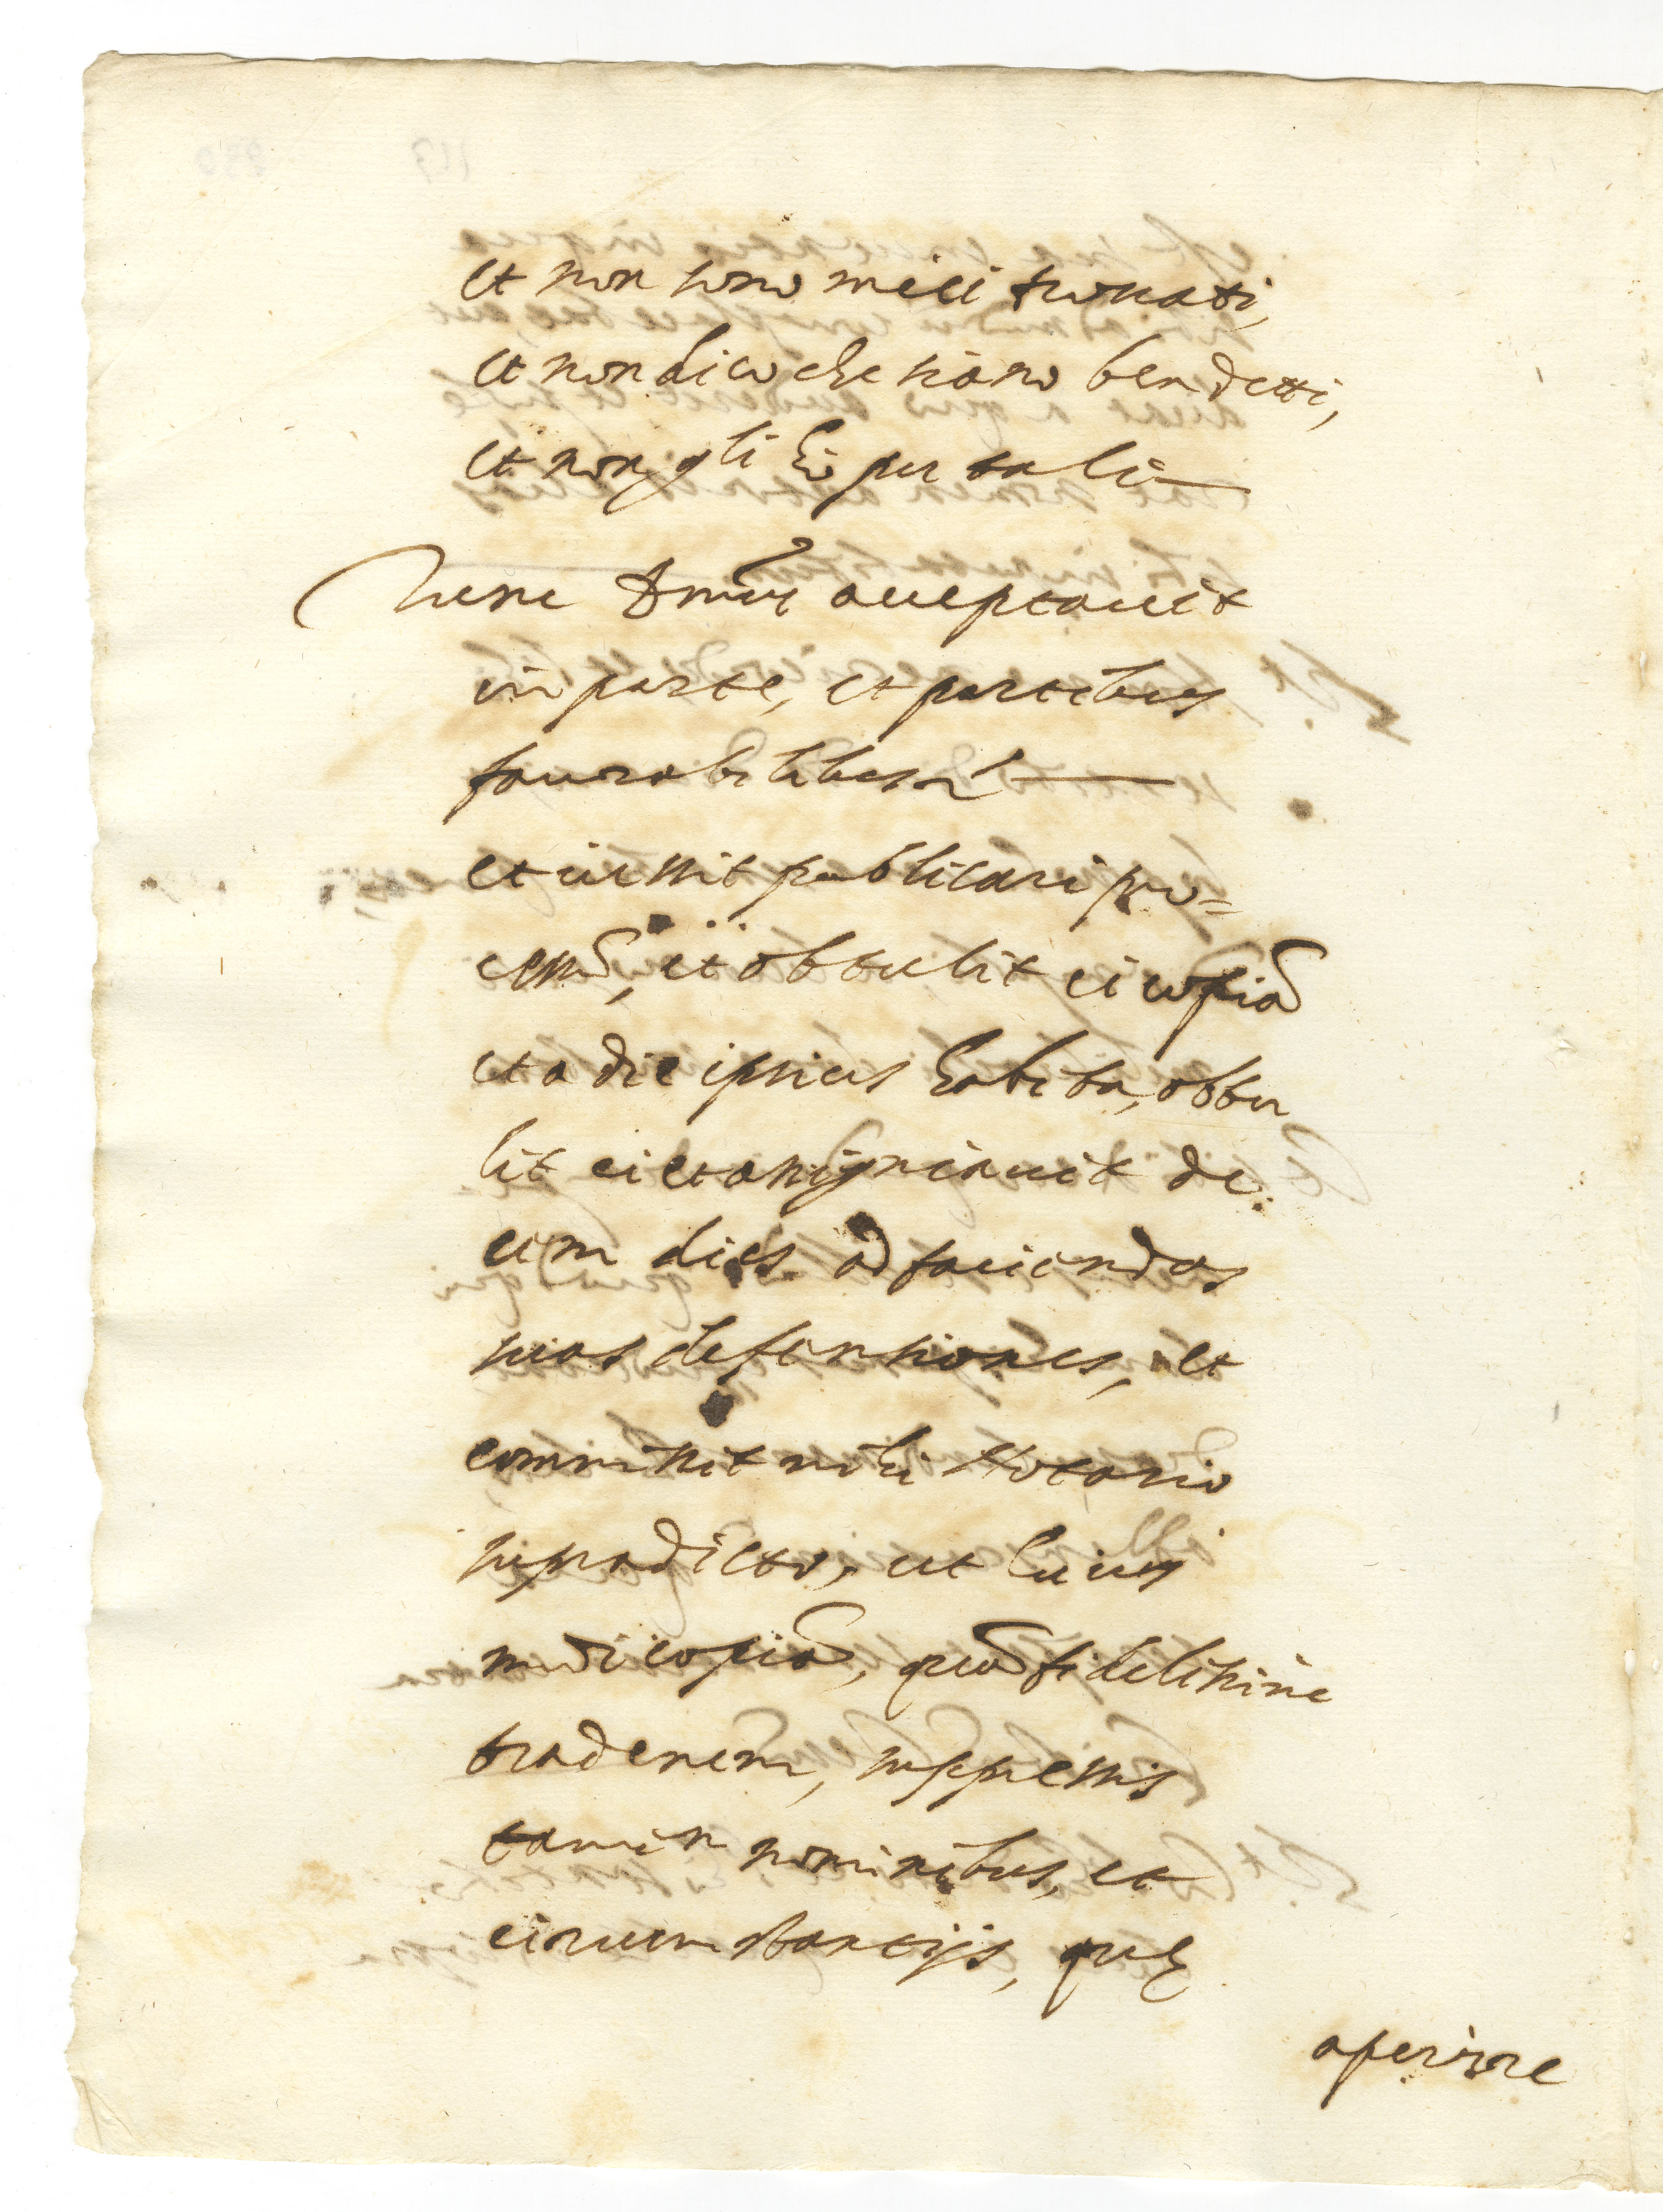 et non sono miei trovati,
et non dico che siano ben detti,
et non gli ho per tali
Tunc Dnus acceptavit
in parte, et partibus
favorabilibus
et iussit publicari pro=
cessũ, et obtulit ei copiã
et a die ipsius habita, obtu
lit ei et assignavit de
cem dies ad faciendas
suas defensiones, et
commisit mihi Notario
supradicto, ut huius
modi copiã, quã fidelissime
traderem, suppressis
tamen nominibus, et
circumstantijs, quę
aperire